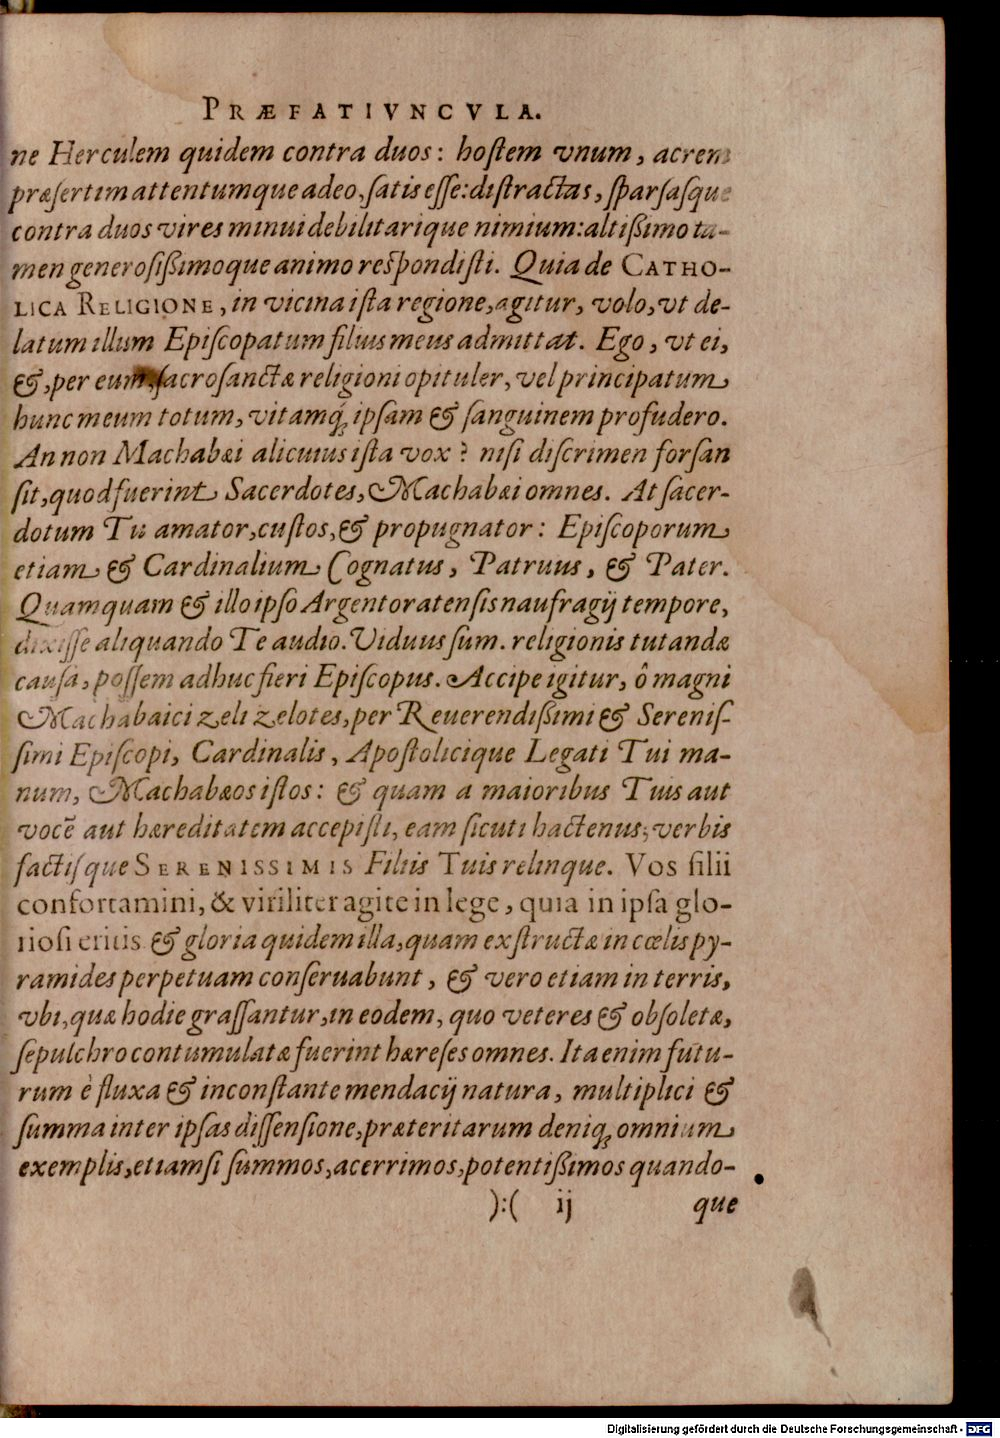 PRÆFATIVNCVLA.
ne Herculem quidem contra duos: hoſtem vnum, acrem
præſertim attentumque adeo, ſatis eſſe: diſtractas, ſparſaſque
contra duos vires minui debilitarique nimium: altißimo ta-
men generoſißimoque animo reſpondiſti. Quia de CATHO-
LICA RELIGIONE, in vicina iſta regione, agitur, volo, vt de-
latum illum Epiſcopatum filius meus admittat. Ego, vt ei,
&, per eum, ſacroſanctæ religioni opituler, vel principatum
hunc meum totum, vitamq́; ipſam & ſanguinem profudero.
An non Machabæi alicuius iſta vox? niſi diſcrimen forſan
ſit, quod fuerint Sacerdotes, Machabæi omnes. At ſacer-
dotum Tu amator, cuſtos, & propugnator: Epiſcoporum
etiam & Cardinalium Cognatus, Patruus, & Pater.
Quamquam & illo ipſo Argentoratenſis naufragij tempore,
dixiſſe aliquando Te audio. Viduus ſum. religionis tutandæ
cauſa, poſſem adhuc fieri Epiſcopus. Accipe igitur, ô magni
Machabaici zeli zelotes, per Reuerendißimi & Sereniſ-
ſimi Epiſcopi, Cardinalis, Apoſtolicique Legati Tui ma-
num, Machabæos iſtos: & quam a maioribus Tuis aut
vocē aut hæreditatem accepiſti, eam ſicuti hactenus, verbis
factiſque SERENISSIMIS Filiis Tuis relinque. Vos filii
confortamini, & viriliter agite in lege, quia in ipſa glo-
rioſi eritis & gloria quidem illa, quam exſtructæ in cœlis py-
ramides perpetuam conſeruabunt, & vero etiam in terris,
vbi, quæ hodie graſſantur, in eodem, quo veteres & obſoletæ,
ſepulchro contumulatæ fuerint hæreſes omnes. Ita enim futu-
rum è fluxa & inconſtante mendacij natura, multiplici &
ſumma inter ipſas diſſenſione, præteritarum deniq; omnium
exemplis, etiamſi ſummos, acerrimos, potentißimos quando-
):( ij que
Digitalisierung gefördert durch die Deutsche Forschungsgemeinschaft - DFG